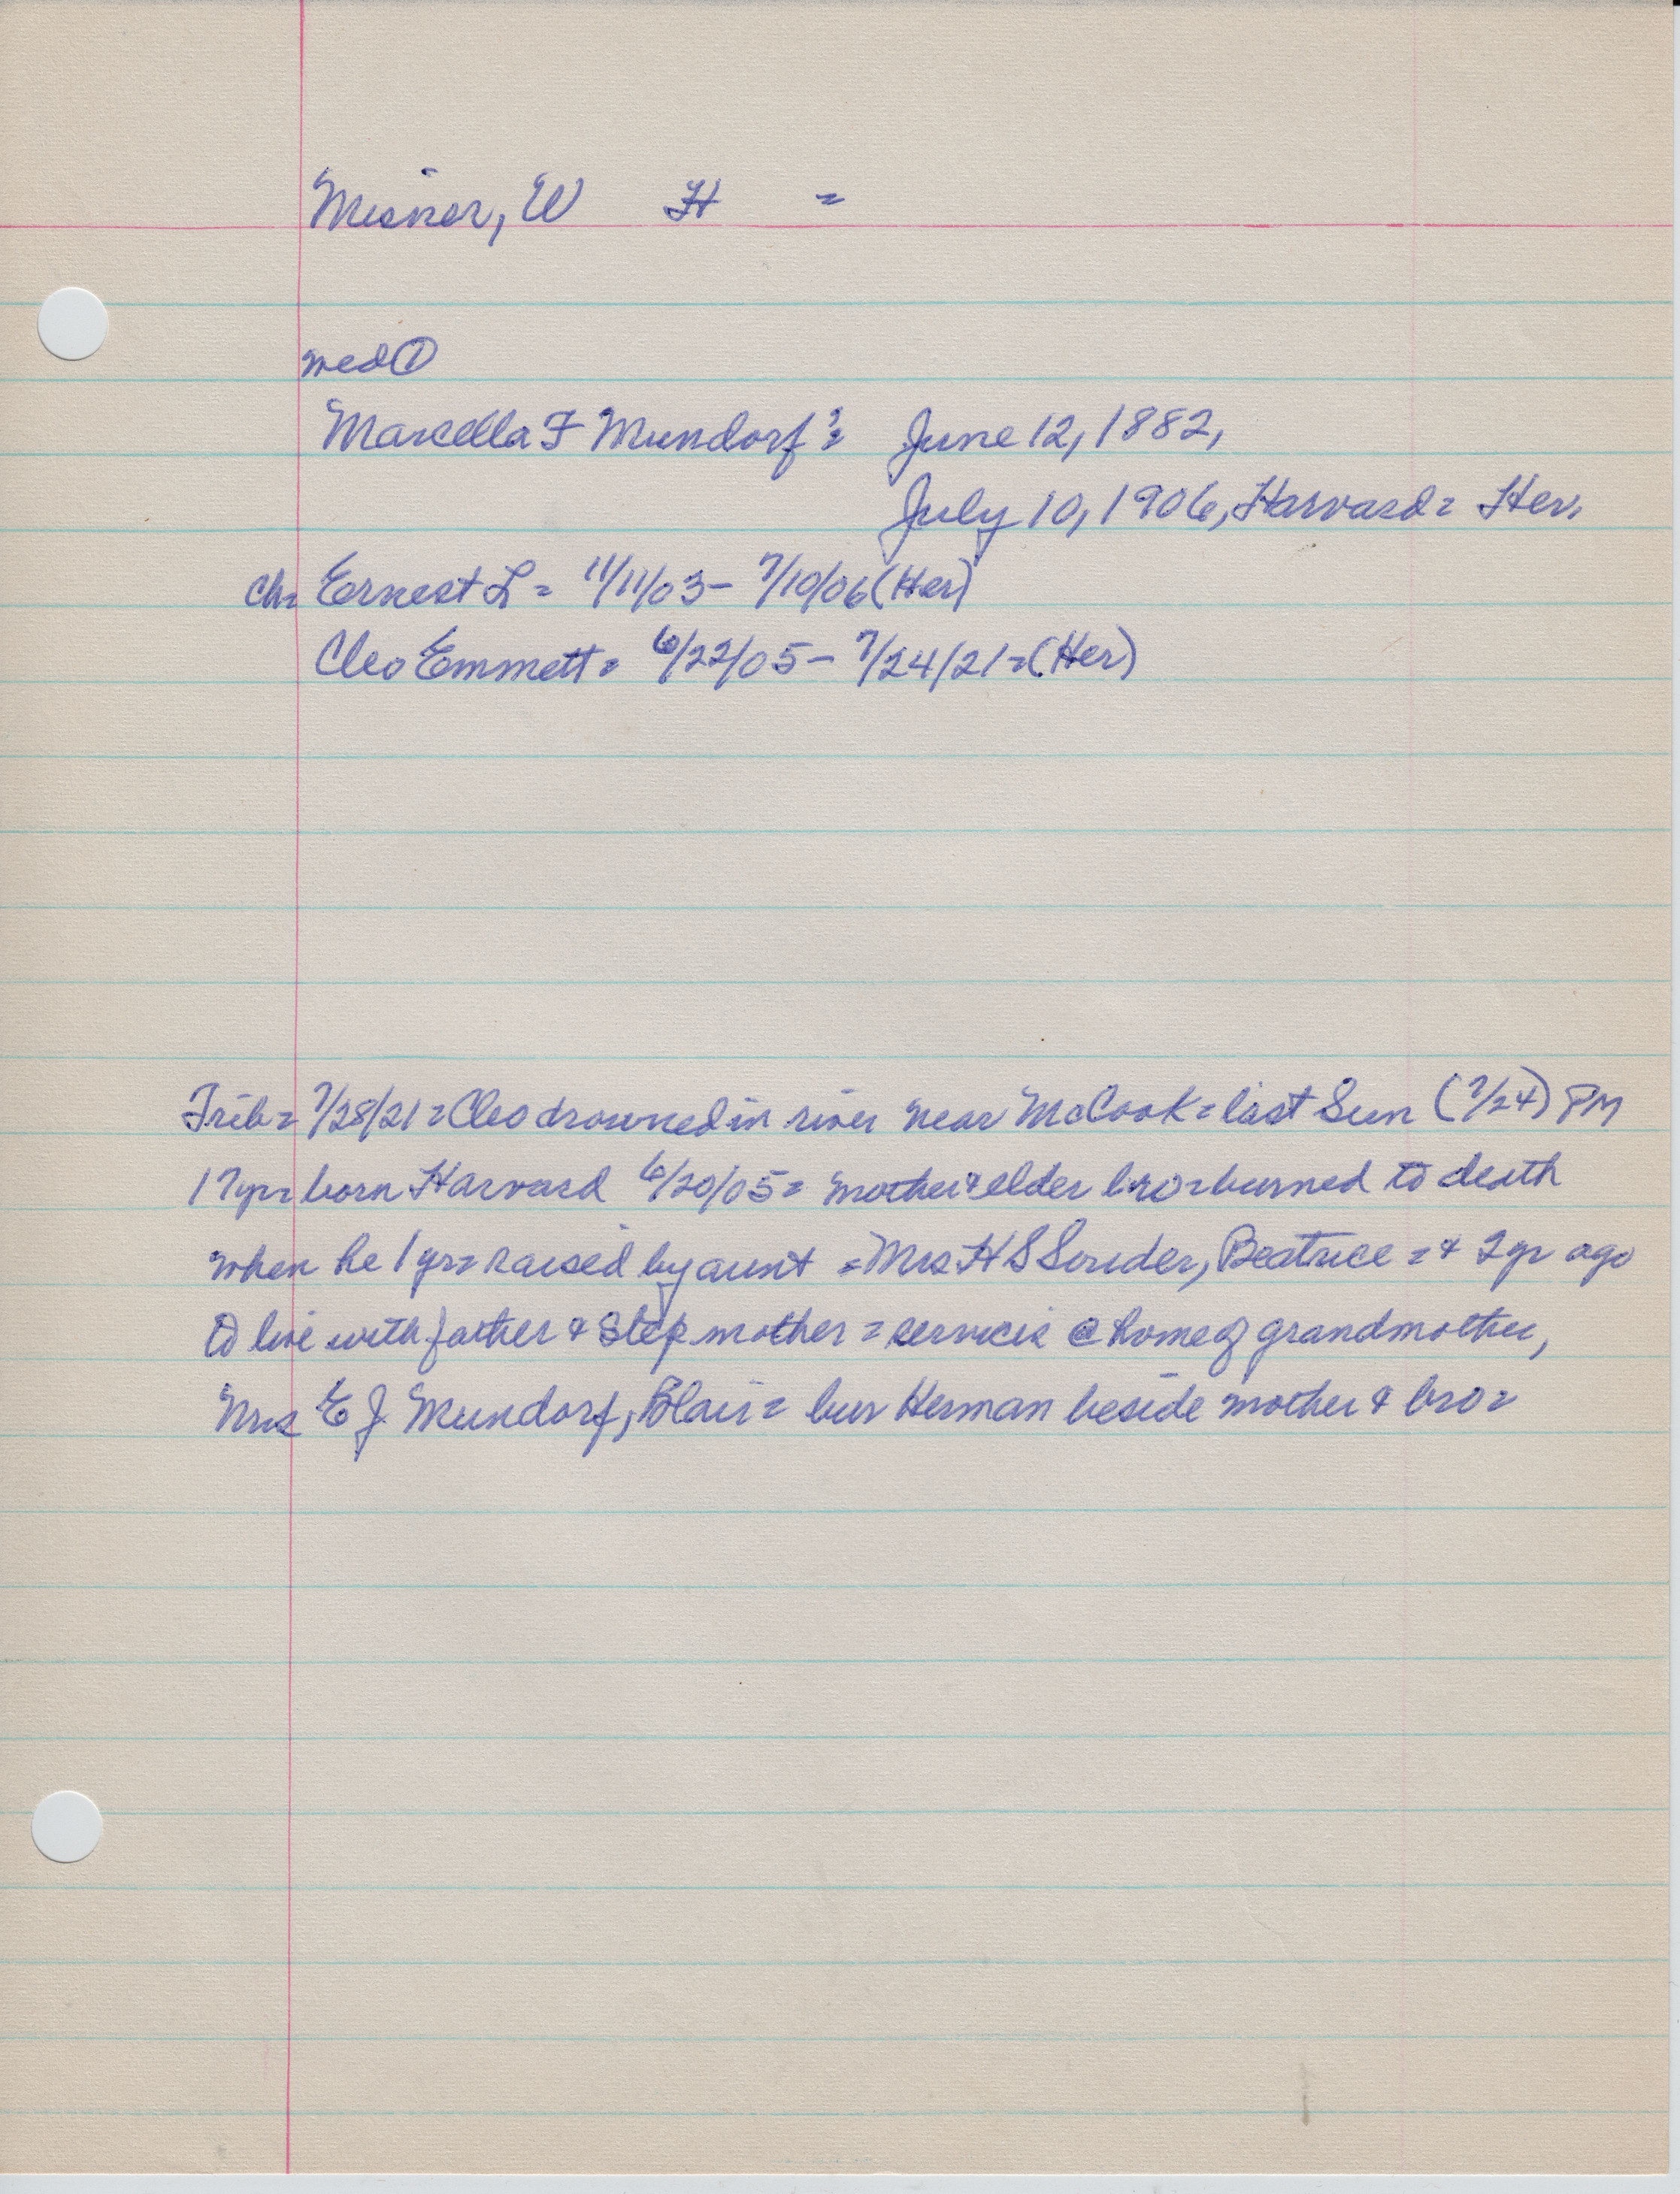 Misner, W H =
wed ①
Marcella F Mundorf = June 12, 1882,
July 10, 1906, Harvard = Her.
Ch= Ernest L = 11/11/03 - 7/10/06 (Her)
Cleo Emmett = 6/22/05 - 7/24/21 = (Her)
Trib = 7/28/21 = Cleo drowned in river near McCook = last Sun (7/24) PM
17yr = born Harvard 6/20/05 = mother & elder bro = burned to death
when he 1 yr = raised by aunt = Mrs H S Souder, Beatrice = & 2 yr ago
to live with father & step mother = services @ home of grandmother,
Mrs E J Mundorf, Blair = bur Herman beside mother & bro =